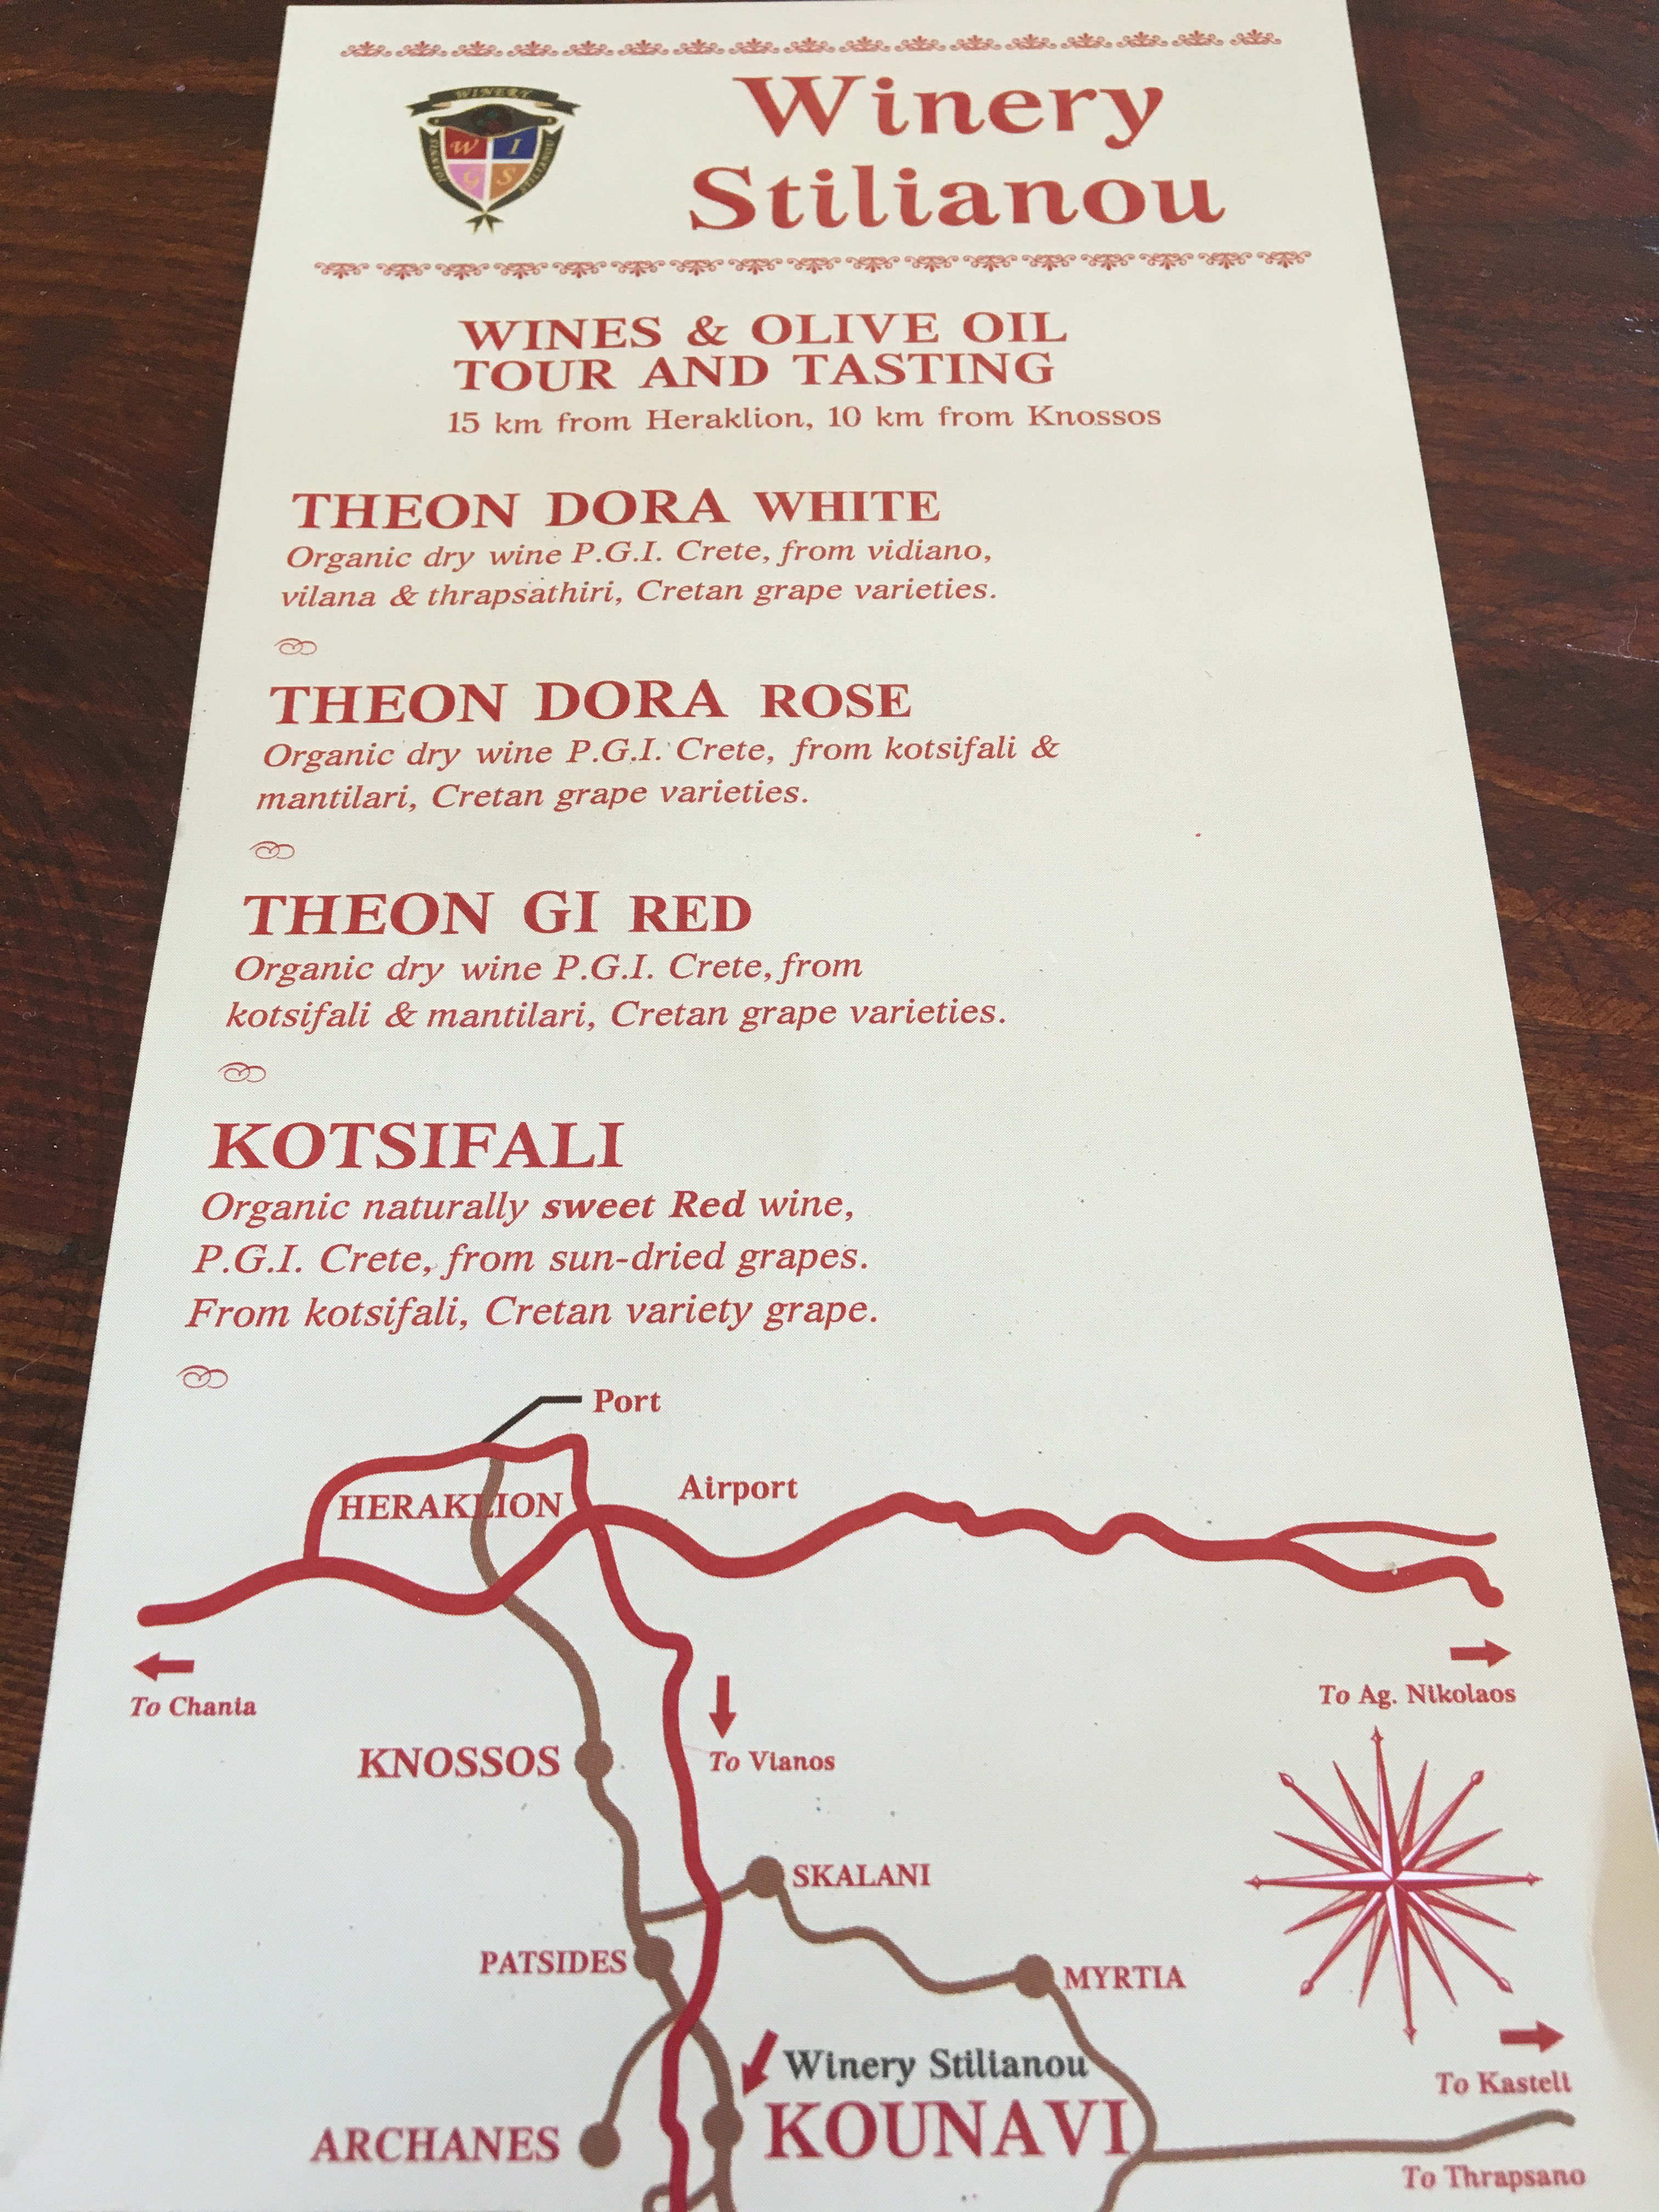 WINERY
IOANNIS
STILIANOU
W I
G S
Winery
Stilianou
WINES & OLIVE OIL
TOUR AND TASTING
15 km from Heraklion, 10 km from Knossos
THEON DORA WHITE
Organic dry wine P.G.I. Crete, from vidiano,
vilana & thrapsathiri, Cretan grape varieties.
THEON DORA ROSE
Organic dry wine P.G.I. Crete, from kotsifali &
mantilari, Cretan grape varieties.
THEON GI RED
Organic dry wine P.G.I. Crete, from
kotsifali & mantilari, Cretan grape varieties.
KOTSIFALI
Organic naturally sweet Red wine,
P.G.I. Crete, from sun-dried grapes.
From kotsifali, Cretan variety grape.
Port
HERAKLION
Airport
To Chania
To Ag. Nikolaos
KNOSSOS
To Vianos
SKALANI
PATSIDES
MYRTIA
Winery Stilianou
To Kasteli
ARCHANES
KOUNAVI
To Thrapsano